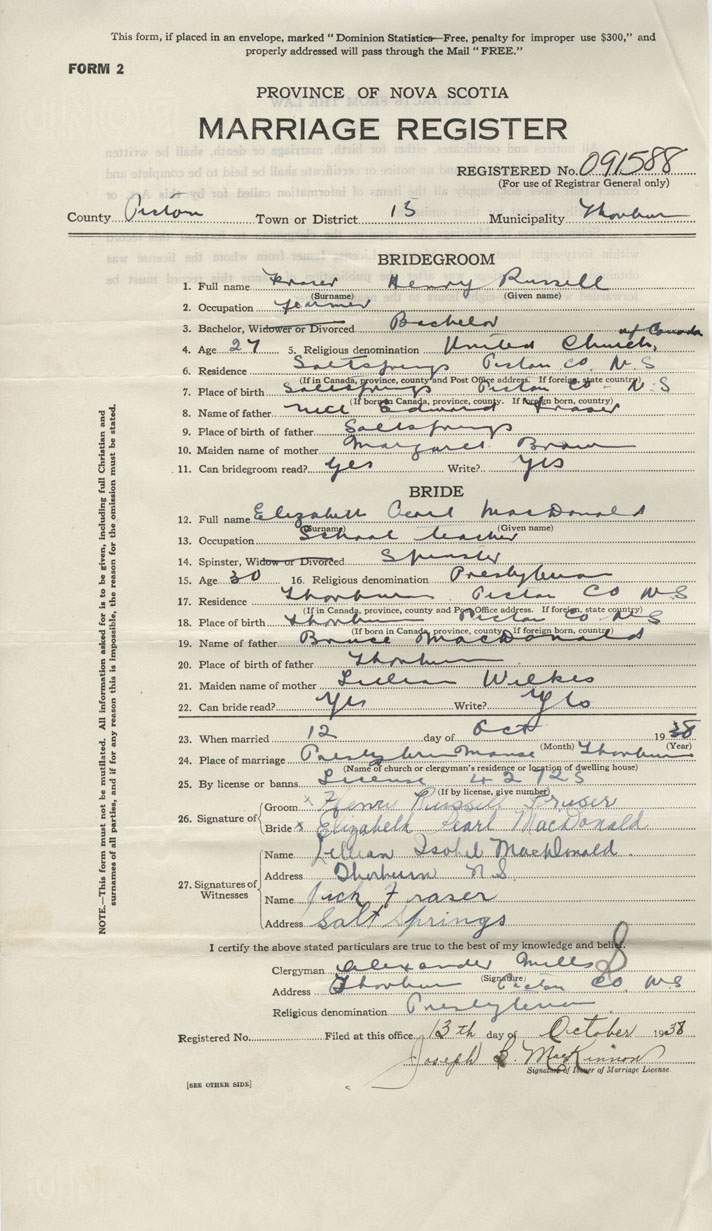 This form, if placed in an envelope, marked "Dominion Statistics—Free, penalty for improper use $300," and
properly addressed will pass through the Mail "FREE."
FORM 2
PROVINCE OF NOVA SCOTIA
MARRIAGE REGISTER
REGISTERED No. 091588
(For use of Registrar General only)
County Pictou Town or District 15 Municipality Thorburn
BRIDEGROOM
1. Full name Fraser Henry Russell
(Surname) (Given name)
2. Occupation farmer
3. Bachelor, Widower or Divorced Bachelor
4. Age 27 5. Religious denomination United Church, of Canada
6. Residence Saltsprings Pictou Co N.S
(If in Canada, province, county and Post Office address. If foreign, state country)
7. Place of birth Saltsprings Pictou Co. N.S
(If born in Canada, province, county. If foreign born, country)
8. Name of father Edward Fraser
9. Place of birth of father Saltsprings
10. Maiden name of mother Margaret Brown
11. Can bridegroom read? Yes Write? Yes
BRIDE
12. Full name Elizabeth Pearl MacDonald
(Surname) (Given name)
13. Occupation School teacher
14. Spinster, Widow or Divorced Spinster
15. Age 30 16. Religious denomination Presbyterian
17. Residence Thorburn Pictou Co N.S
(If in Canada, province, county and Post Office address. If foreign, state country)
18. Place of birth Thorburn Pictou Co N.S
(If born in Canada, province, county. If foreign born, country)
19. Name of father Bruce MacDonald
20. Place of birth of father Thorburn
21. Maiden name of mother Lillian Wilkes
22. Can bride read? Yes Write? Yes
23. When married 12 day of Oct 1938
(Month) (Year)
24. Place of marriage Presbyterian Manse Thorburn
(Name of church or clergyman's residence or location of dwelling house)
25. By license or banns License 42725
(If by license, give number)
26. Signature of Groom x Henry Russell Fraser
Bride x Elizabeth Pearl MacDonald
27. Signatures of Witnesses
Name Lillian Isobel MacDonald.
Address Thorburn N.S.
Name Jack Fraser
Address Salt Springs
I certify the above stated particulars are true to the best of my knowledge and belief.
Clergyman Alexander Mills
(Signature)
Address Thorburn Pictou Co. N.S
Religious denomination Presbyterian
Registered No. Filed at this office 13th day of October 1938
Joseph MacKinnon
Signature of Issuer of Marriage License
[SEE OTHER SIDE]
NOTE.—This form must not be mutilated. All information asked for is to be given, including full Christian and
surnames of all parties, and if for any reason this is impossible, the reason for the omission must be stated.